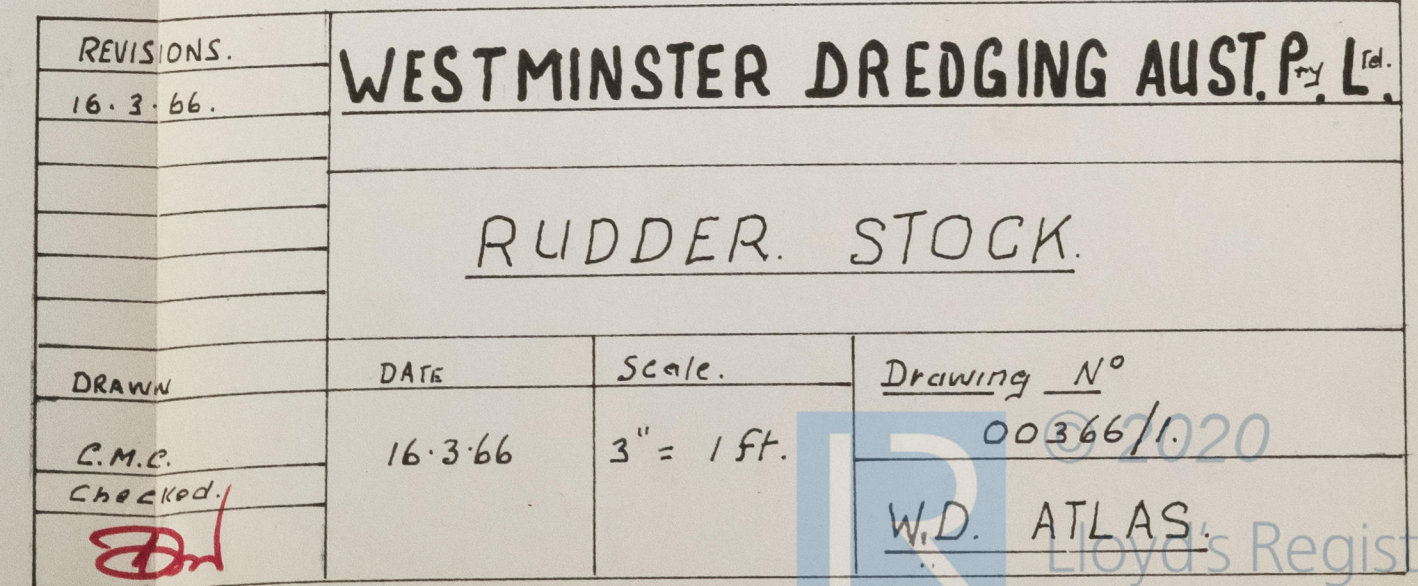 REVISIONS.
16.3.66.
WESTMINSTER DREDGING AUST. Pty. Ltd.
RUDDER. STOCK.
DRAWN
C.M.C.
Checked.
DATE
16.3.66
Scale.
3" = 1 ft.
Drawing Nº
00366/1.
W.D. ATLAS.
© 2020
Lloyd's Regist